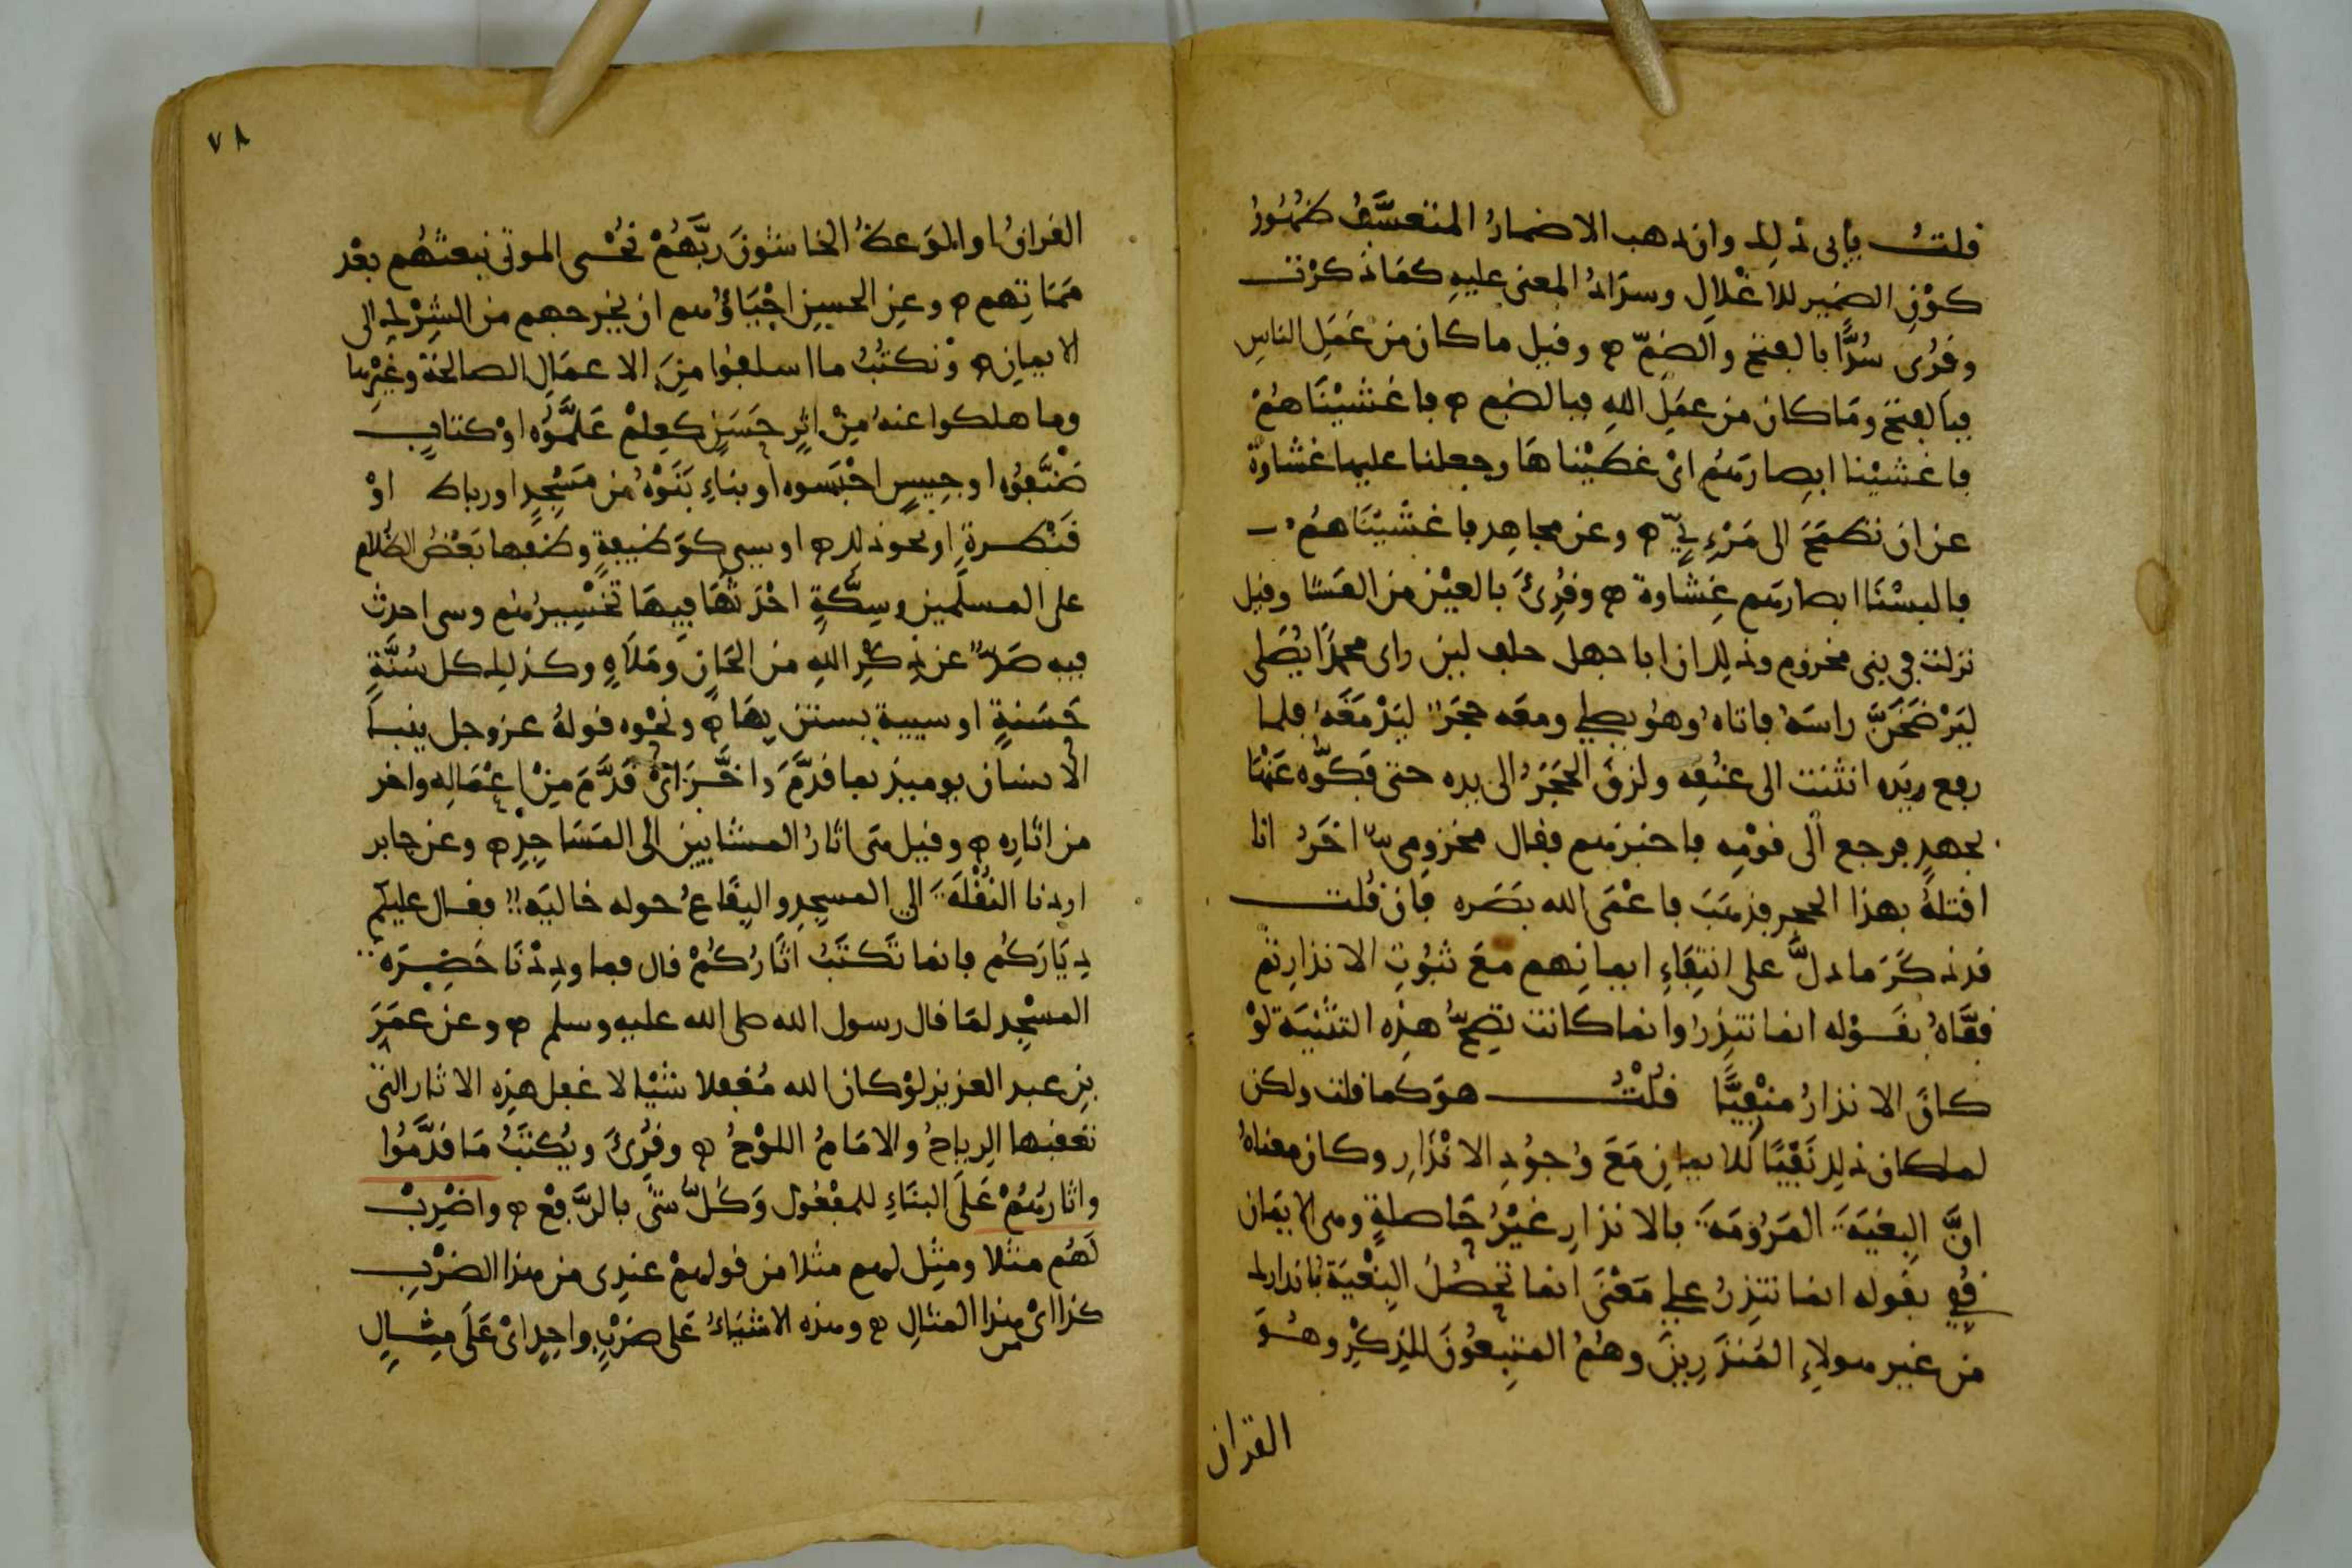 قلت يأبى ذلك وان ذهب الاضمار المتعسَّف ظهُورُ
كوْنِ الضمير للاغْلالِ وسدَادُ المعنى عليهِ كمَا ذكرْت
وقرُى سُدًّا بالفتح والضمّ ۞ وقيل ما كان من عَمَلِ الناسِ
فبالفتح ومَا كان من عمَلِ اللهِ فبالضم ۞ فاغشيْنَاهُمْ
فاغشيْنا ابصارَهم اىْ غطيْناهَا وجعلنا عليها غشاوةً
عن ان تطمَحَ الى مَرْءِيّ ۞ وعن مجاهِد فاغشيْنَاهمُ
فالبسْنَا ابصارهم غِشاوة ۞ وقرِئَ بالعيْن من العَشا وقيل
نزلت في بنى مخزوم وذلك ان ابا جهل حلف لين راى محمدًا يُصَلى
ليَرْضَخَنَّ راسَهُ فاتاهُ وهوُ يصلي ومعَه حجَرٌ ليَدْمَغَهُ فلما
رفع يدَه انثنت الى عنُقِه ولزقَ الحجَرُ الى يده حتى فكوّه عَنْهَا
بجهدٍ فرجع الى قوْمِه فاخبَرهم فقال مخزومى اخَرُ انا
اقتلهُ بهذا الحجر فذهَبَ فاعْمَى الله بصَره فان قُلت
قد ذكَرَ ما دلَّ على انتِفَاءِ ايمانهم مَعَ ثبُوتِ الانذارِ ثم
قفَّاهُ بقَوْله انما تنذِرُ وانما كانت تصِحّ هذِه التثنيَة لوْ
كانَ الانذارُ منْفِيًّا قُلْتُ هوَ كما قلت ولكن
لما كان ذلك نَفْيًا للايمانِ مَعَ وُجوُدِ الانْذَارِ وكان معناهُ
انَّ البغيَةَ المَرُومَةَ بالانذارِ غيْرُ حَاصلةٍ وهى الايمَان
قُفي بقوله انما تنذِرُ على مَعْنَى انما تحصُلُ البغْيَة بانذارك
من غير هولاءِ المُنذَرِينَ وهُمُ المتبِعُونَ للذِكْرِ وهُوَ
القران
٧٨
القرانُ او الموَعظةُ الخاشونَ ربَّهُمْ نحْيى الموتى نبعثهُم بعْد
مَمَاتِهم ۞ وعن الحسن احْيَاؤُهم ان يخرجهم من الشِرْكِ الى
الايمانِ ۞ وَنكتُبُ ما اسلفوُا مِنَ الاعمَالِ الصالحة وغيْرِها
وما هلكوا عنهُ مِنْ اثرٍ حَسَنٍ كعِلمْ عَلَّموُه اوْ كتابٍ
صَنَّفوُه او حبيسٍ احْبَسوه او بناءٍ بَنَوْهُ من مَسْجدٍ او رباط اوْ
قَنْطرةٍ او نحو ذلك ۞ او سيئ كوَظيفةٍ وظفها بَعْضُ الظلام
على المسلمين وسِكّةٍ احْدَثهَا فيهَا تخْسِيرُهم وسى احدث
فيه صَدٌّ عن ذِكْرِ اللهِ من الحَانٍ ومَلَاهٍ وكذلك كل سُنَّةٍ
حَسَنةٍ او سيية يستن بهَا ۞ ونحْوه قولهُ عز وجل ينبأ
الانسان يوميذ بما قدَّمَ واخَّرَ اىْ قَدَّمَ مِنْ اعْمَالِه واخر
من اثارِه ۞ وقيل هى اثارُ المشايين الى المَسَاجِدِ ۞ وعن جابر
اردنا النُقْلَةَ الى المسجِد والبِقَاعُ حوله خاليَه فقال عليكم
دِيَارَكُم فانما تَكتَبُ اثَارُكُمْ قال فما ودِدْنَا حَضْرَة
المسْجِد لمَا قال رسول الله صلى الله عليه وسلم ۞ وعن عمَرَ
بنِ عبد العزيز لوْ كان الله مُغفِلا شيْا لاغفل هذِه الاثار التى
تعفيها الرياحُ والامَامُ اللوْحُ ۞ وقُرِئَ ويُكتَبُ مَا قدَّمُوا
واثارُهُمْ عَلَى البنَاءِ للمفْعُول وَكُلُّ شيْ بالرَّفْع ۞ واضْرِبْ
لَهُم مثلا ومثِل لهم مثلا من قولهمْ عندِى من هذا الضرْبِ
كذا اىْ من هذا المثالِ ۞ وهذه الاشيَاءُ عَلى ضرْبٍ واحِدٍ اىْ عَلَى مِثالٍ